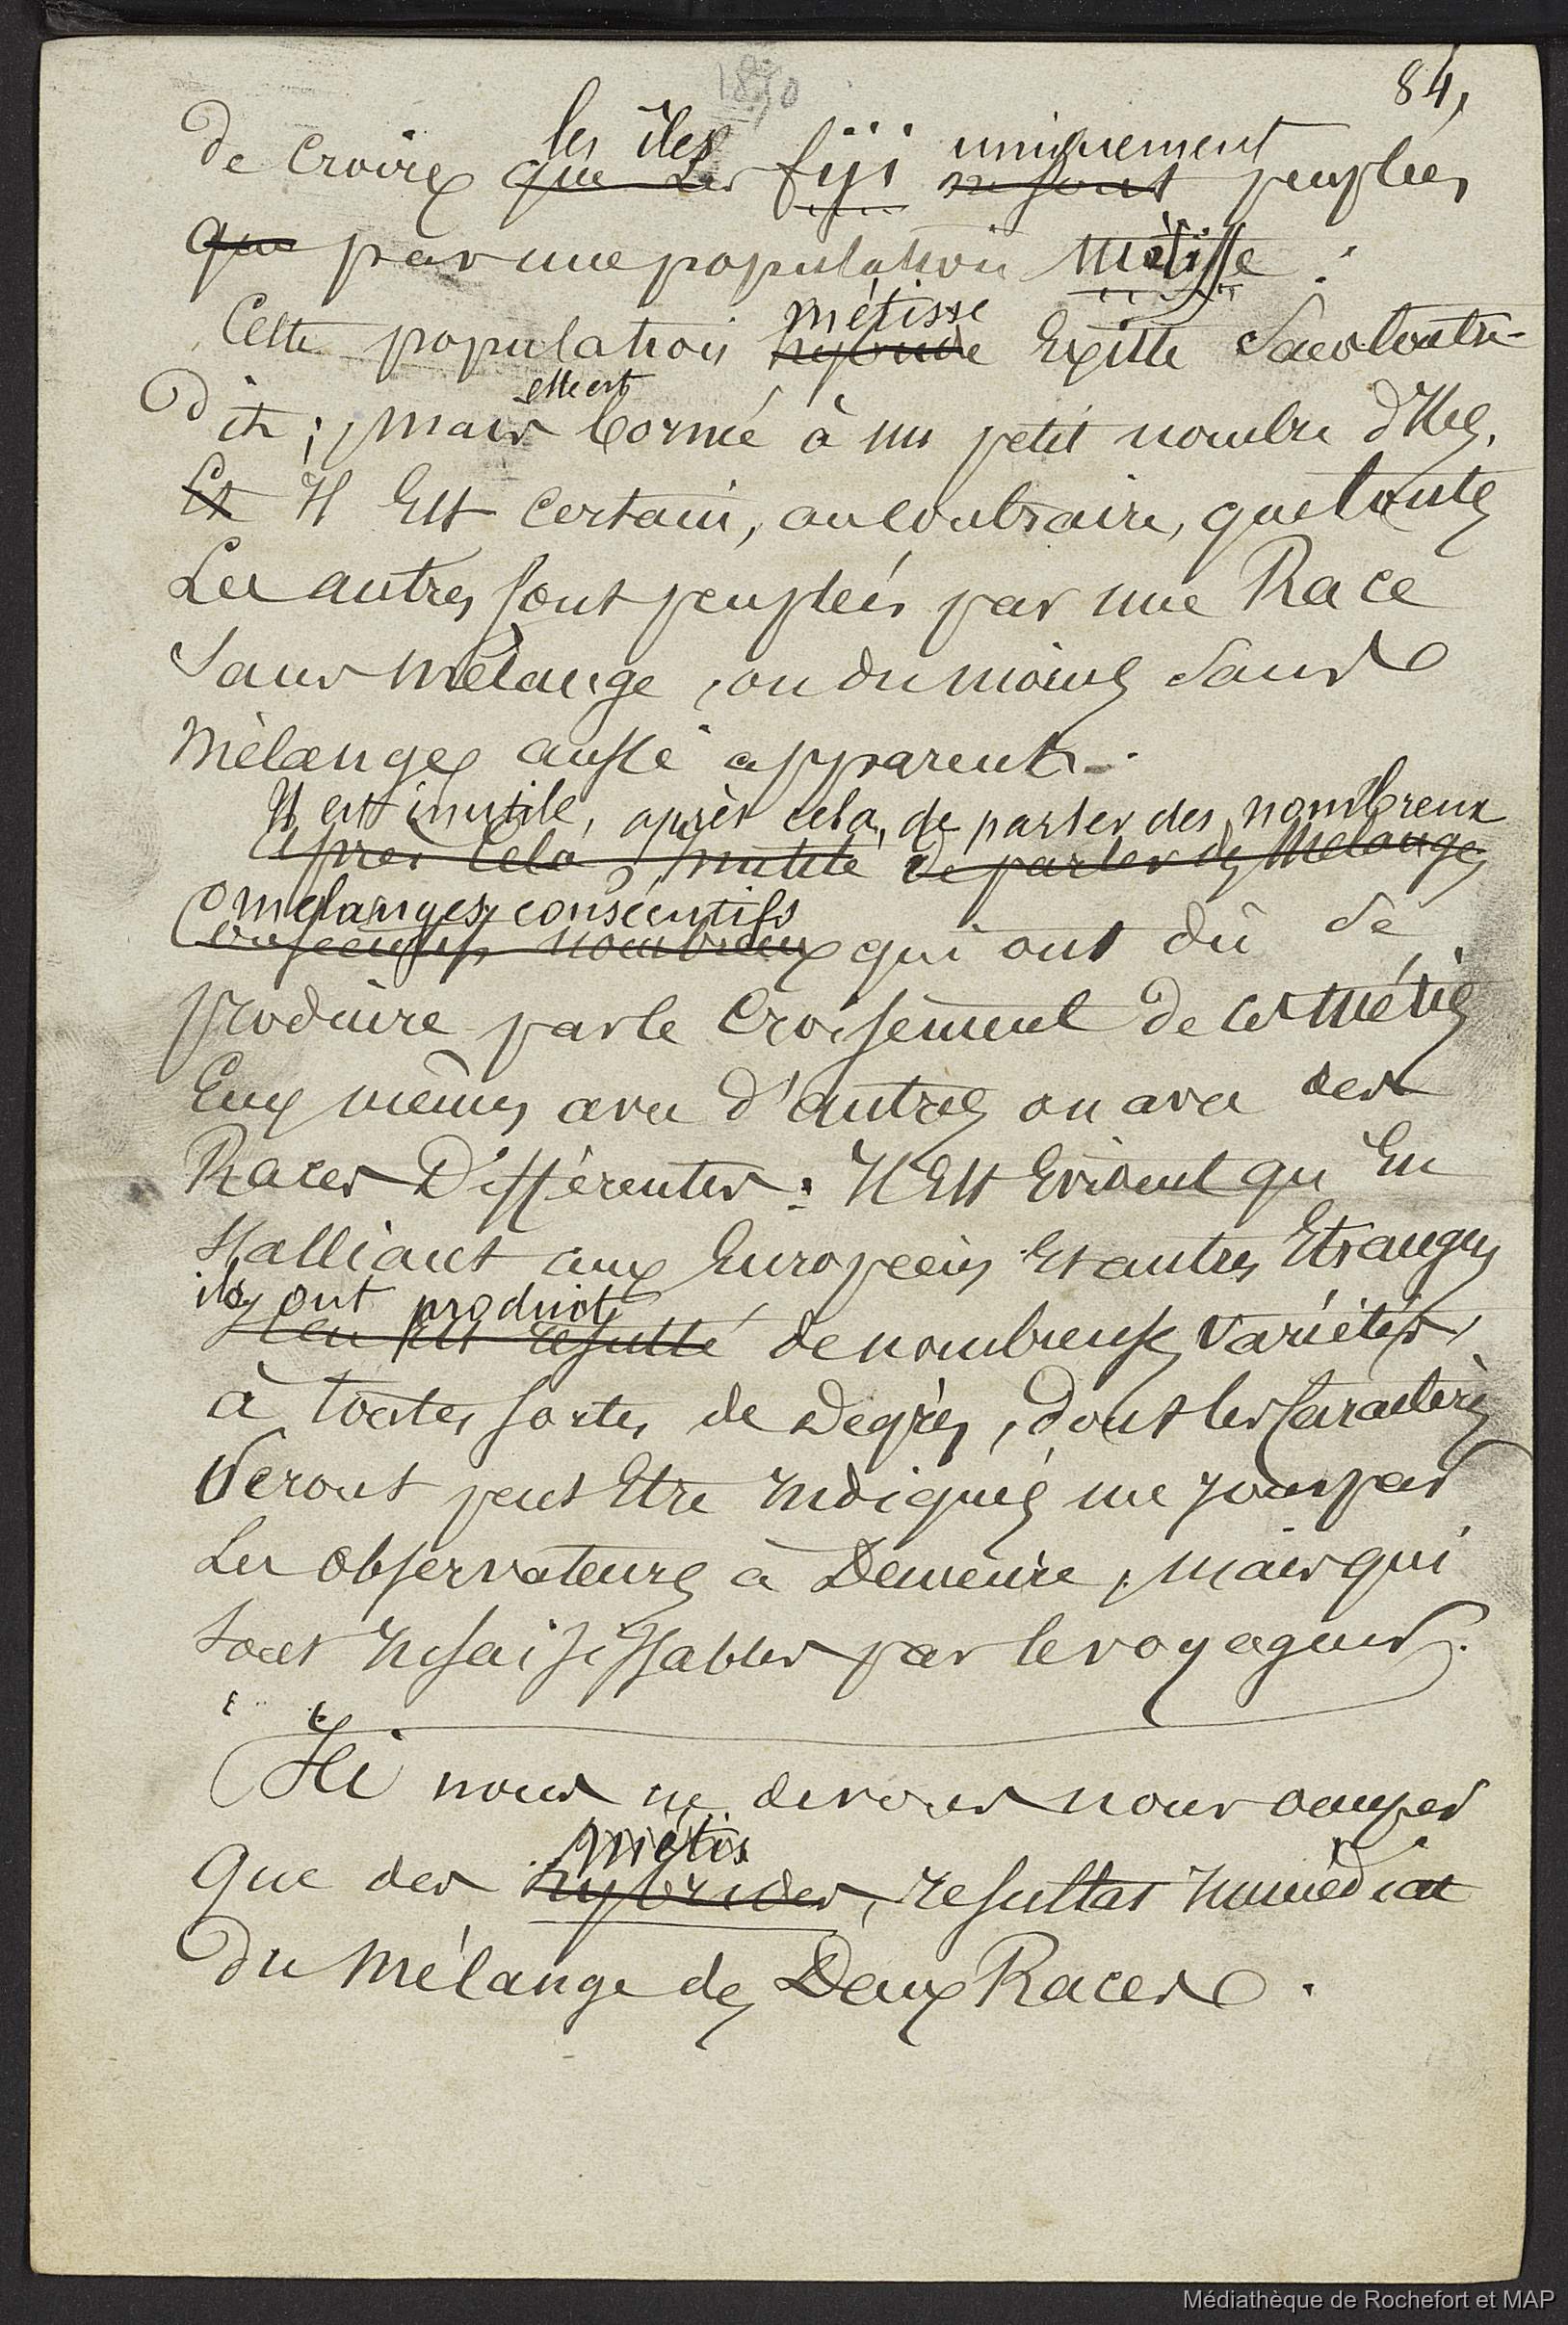 84,
1890
les îles uniquement
de croire que Les fiji ne sont peuplées
que par une population Métisse :
métisse
Cette population hybride Existe Sans Contre-
elle est
dit ; mais borné à un petit nombre d'Iles.
Et Il Est certain, au contraire, que toutes
Les autres sont peuplées par une Race
Sans mélange, ou du moins Sans
mélanges aussi apparents.
Il est inutile, après cela, de parler des nombreux
après Cela, inutile de parler des Mélanges
mélanges consécutifs
Consécutifs nombreux qui ont dû se
produire par le Croisement de ces Métis
Eux mêmes avec d'autres ou avec des
Races Différentes : Il Est Evident qu'En
S'alliant aux Européens Et autres Etrangers
ils ont produit
Il en Est résulté de nombreuses variétés,
à toutes sortes de Degrés, dont les Caractères
Seront peut Etre Indiqués un jour par
Les observateurs à Demeure, mais qui
Sont Insaisissables par le voyageur.
Ici nous ne devons nous occuper
métis
Que des hybrides, résultat Immédiat
du Mélange des Deux Races.
Médiathèque de Rochefort et MAP